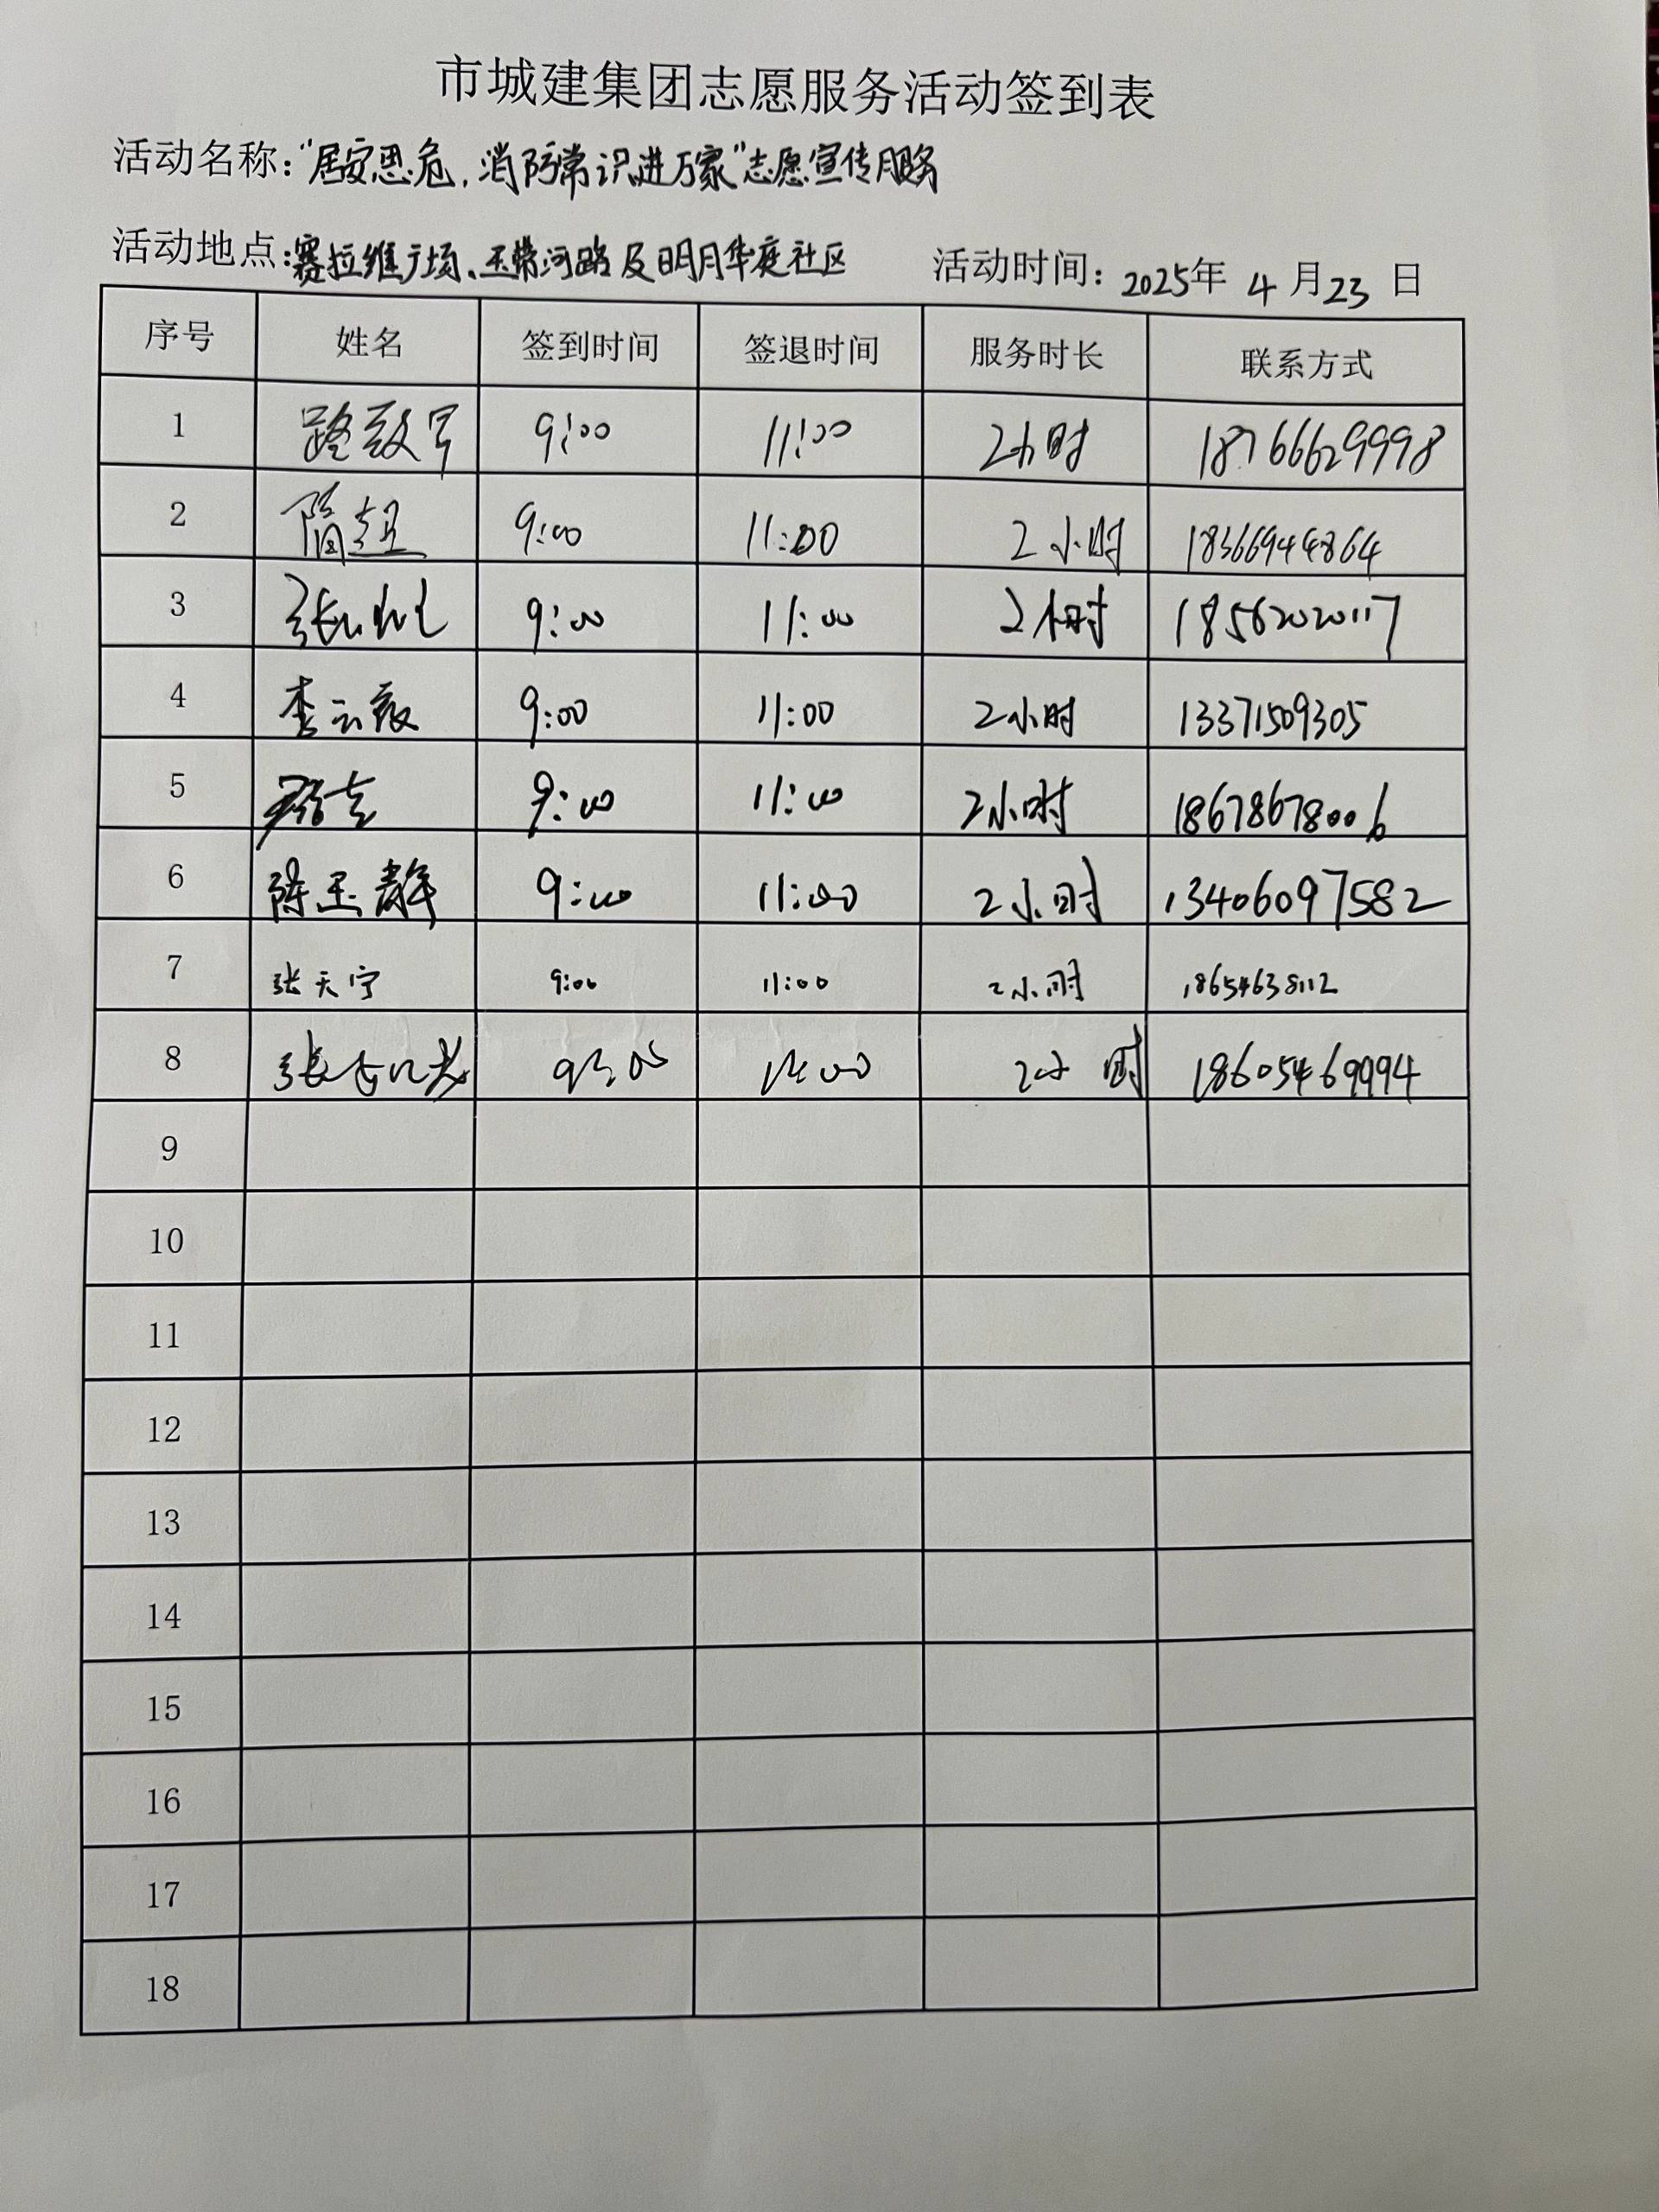 市城建集团志愿服务活动签到表
活动名称:“居安思危,消防常识进万家”志愿宣传服务
活动地点:赛拉维广场、玉带河路及明月华庭社区 活动时间:2025年4月23日
序号 姓名 签到时间 签退时间 服务时长 联系方式
1 路致军 9:00 11:00 2小时 18766629998
2 隋超 9:00 11:00 2小时 18366944864
3 张 9:00 11:00 2小时 18562020117
4 李云 9:00 11:00 2小时 13371509305
5 9:00 11:00 2小时 18678678006
6 陈玉静 9:00 11:00 2小时 13406097582
7 张天宁 9:00 11:00 2小时 18654638112
8 张 9:00 11:00 2小时 18605469994
9
10
11
12
13
14
15
16
17
18